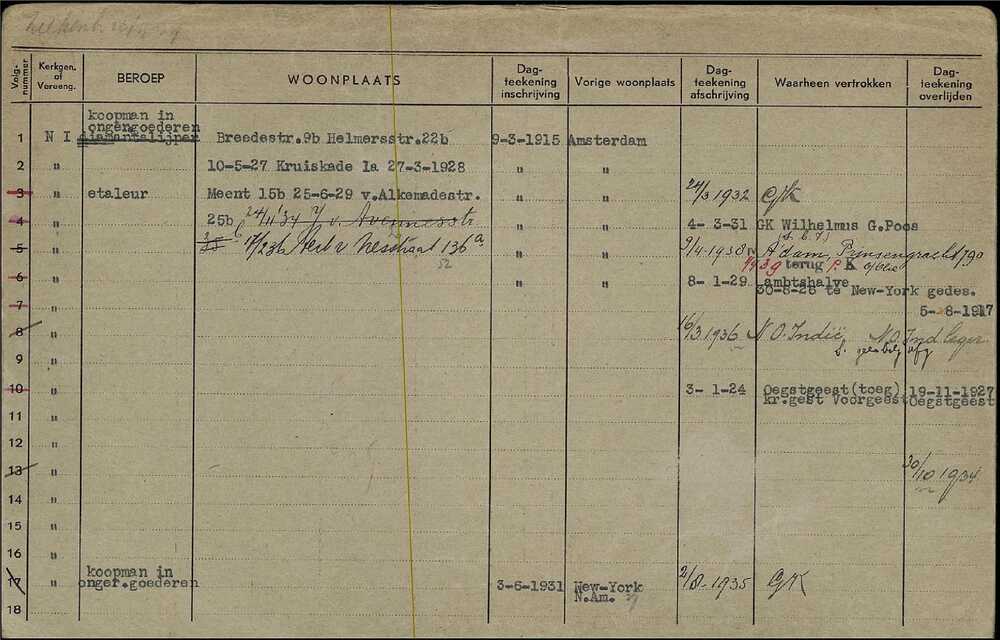 Volg-nummer Kerkgen. of Vereeng. BEROEP WOONPLAATS Dag-teekening inschrijving Vorige woonplaats Dag-teekening afschrijving Waarheen vertrokken Dag-teekening overlijden
koopman in
ongengoederen
1 N I diamantslijper Breedestr.9b Helmersstr.22b 9-3-1915 Amsterdam
2 " 10-5-27 Kruiskade 1a 27-3-1928 " "
3 " etaleur Meent 15b 25-6-29 v.Alkemadestr. " " 24/3 1932 GK
4 " 25b 24/11'34 v. Avennesstr " " 4- 3-31 GK Wilhelmus G.Poos
5 " 136a " " 9/4-1938 A'dam, Prinsengracht 790
1939 terug P.K
6 " " " 8- 1-29 ambtshalve
30-8-26 te New-York gedes.
7 " 5- 8-1917
8 " 16/3.1936 N.O.Indië N.O.Ind leger
9 "
10 " 3- 1-24 Oegstgeest(toeg) 19-11-1927
kr.gest Voorgeest Oegstgeest
11 "
12 "
13 " 30/10 1934
14 "
15 "
16 "
koopman in
17 " onger.goederen 3-6-1931 New-York 2/8-1935 GK
N.Am.
18